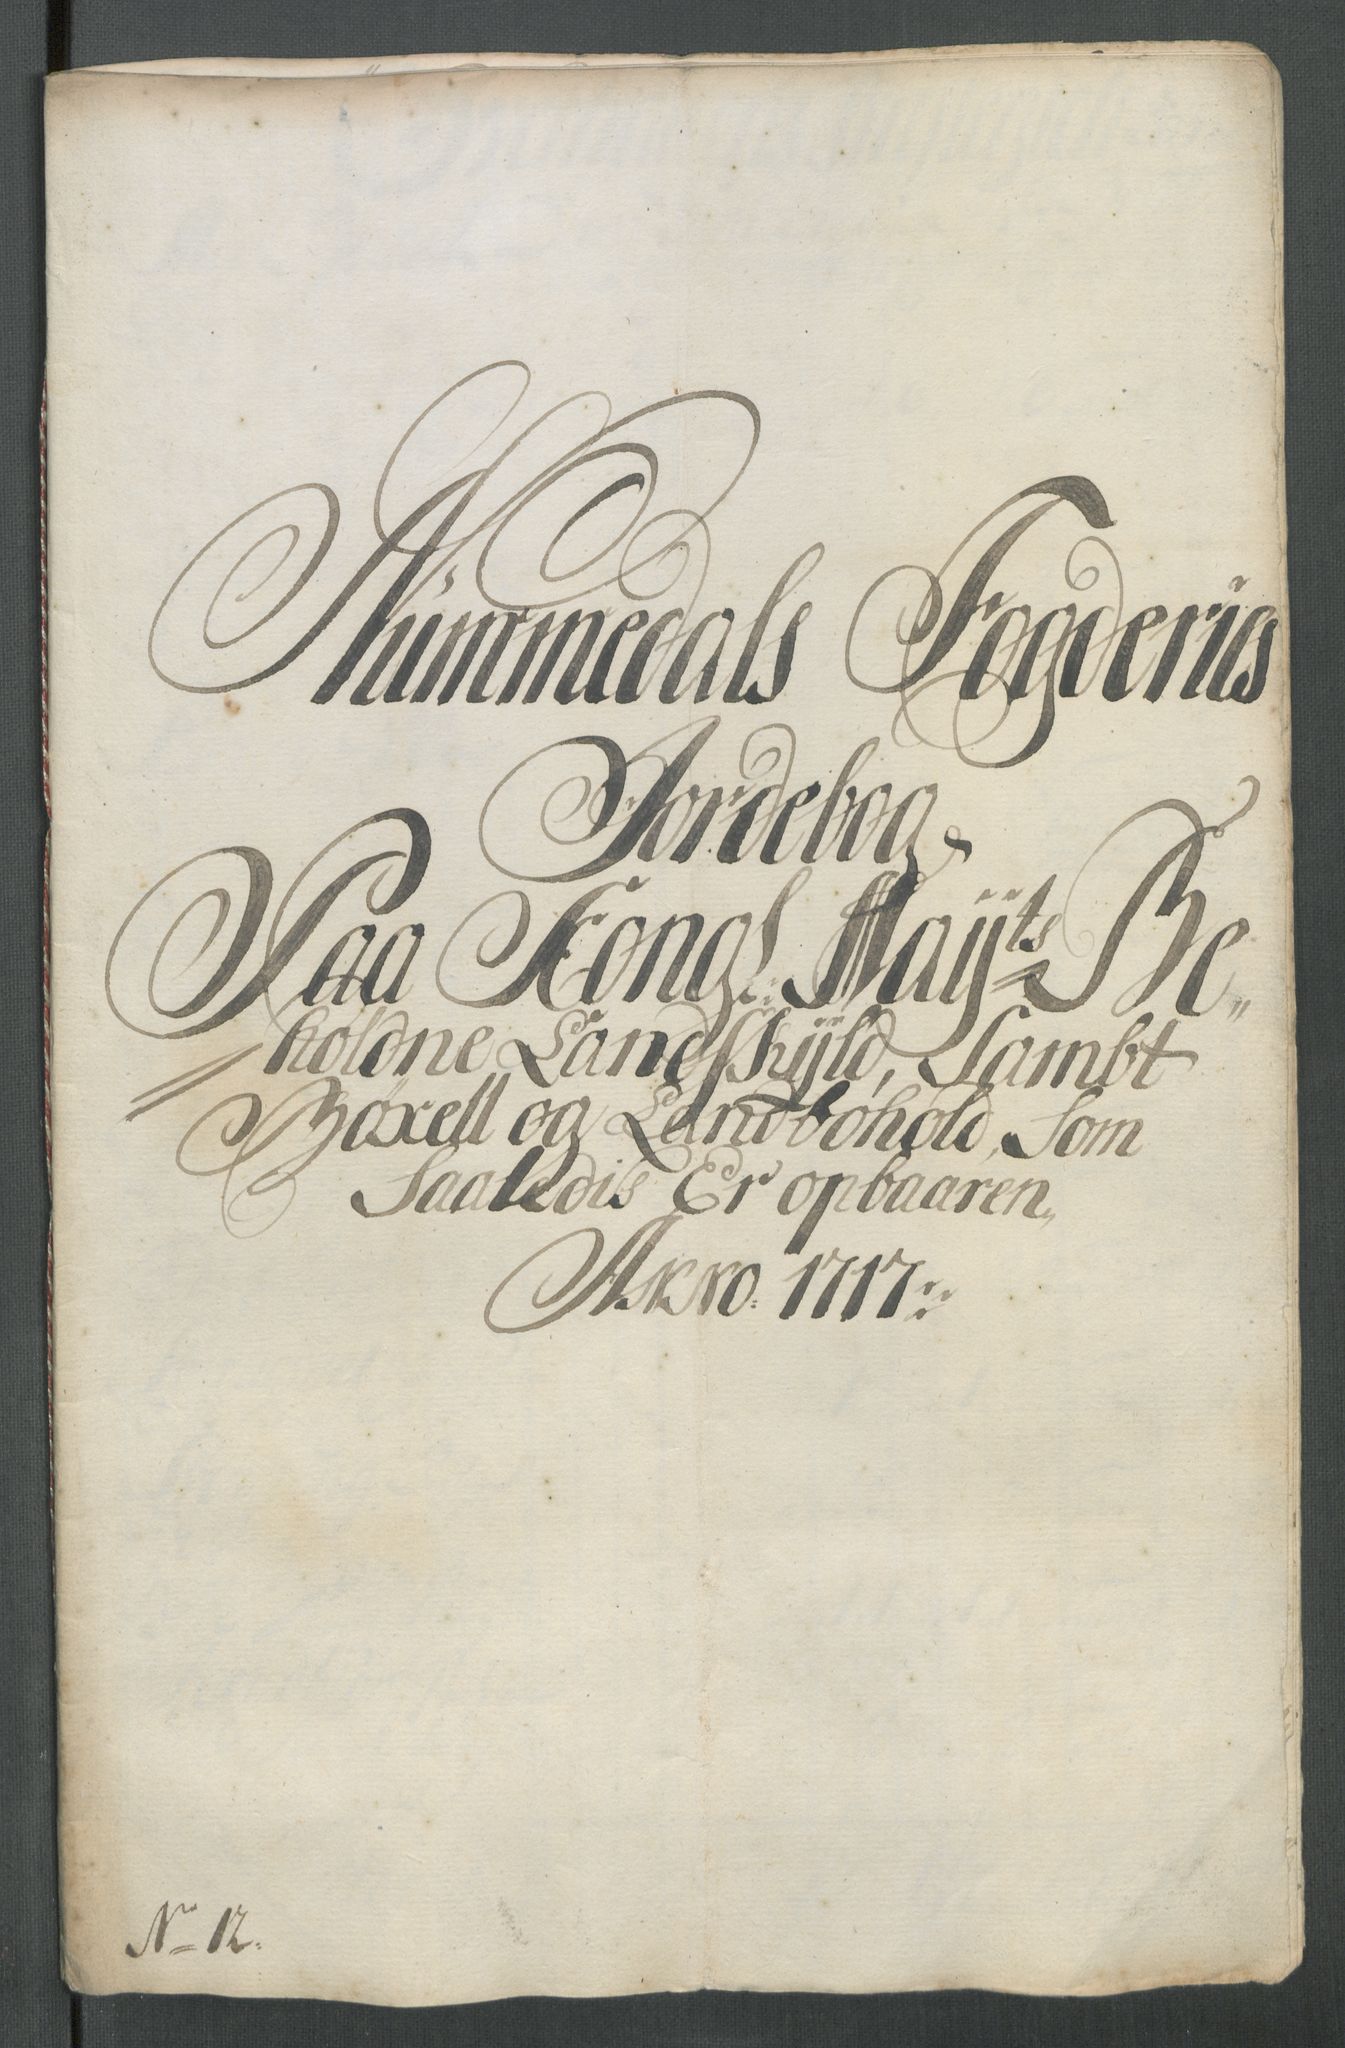 Nummedals Fogderies
Jordebog
Paa Kongl: Mayts Be„
holdne Landskyld, Sambt
Böxell og Landbohold, Som
Saaledis Er opbaaren,
Anno 1717:
No 12.